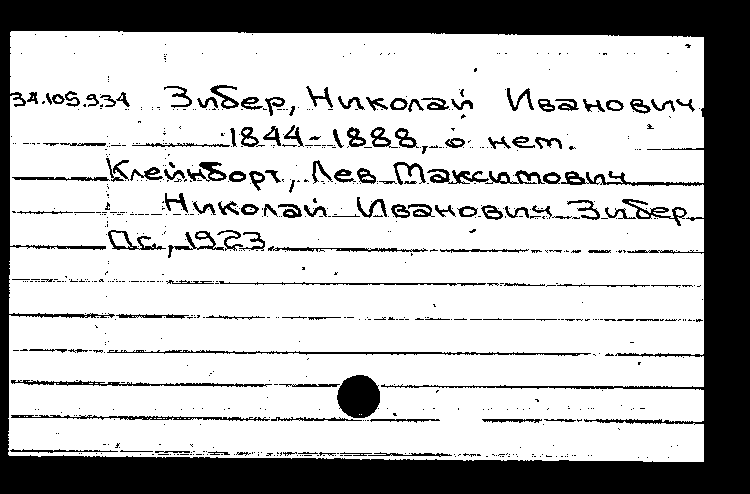 34.105.934 Зибер, Николай Иванович,
1844-1888, о нет.
Клейнборт, Лев Максимович
Николай Иванович Зибер.
Пг., 1923.